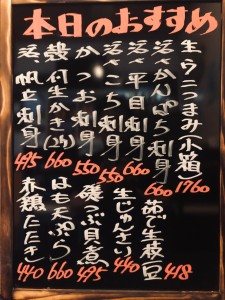 本日のおすすめ
生うにつまみ小箱 1760
活〆かんぱち刺身 660
活〆平目刺身 550
活〆こち刺身 550
かつお刺身 550
殻付生かき(2ケ) 660
活帆立刺身 495
茹で生枝豆 418
生じゅんさい 440
磯つぶ貝煮 495
はも天ぷら 660
水鶏たたき 440